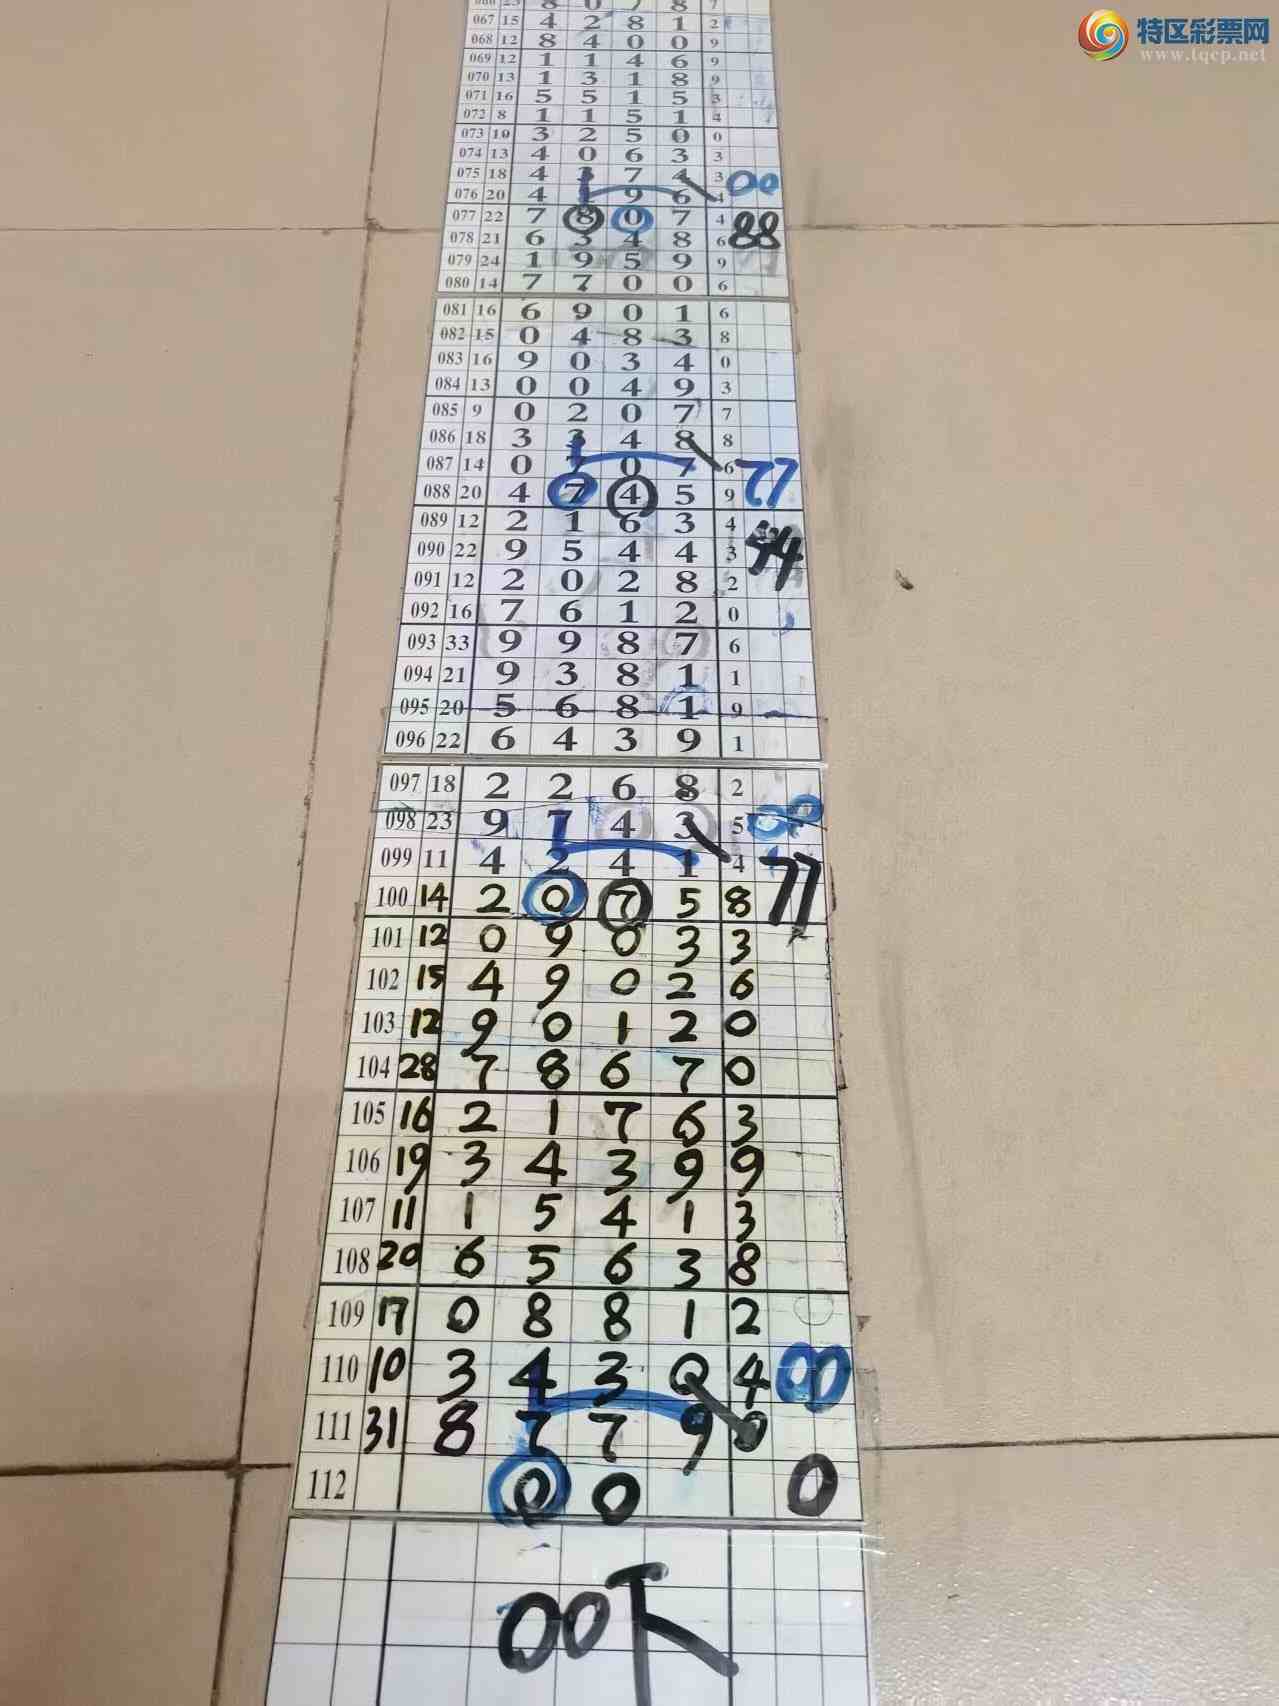 特区彩票网
www.tqcp.net
067 15 4 2 8 1 2
068 12 8 4 0 0 9
069 12 1 1 4 6 9
070 13 1 3 1 8 9
071 16 5 5 1 5 3
072 8 1 1 5 1 4
073 10 3 2 5 0 0
074 13 4 0 6 3 3
075 18 4 3 7 4 3 00
076 20 4 1 9 6 4
077 22 7 8 0 7 4 88
078 21 6 3 4 8 6
079 24 1 9 5 9 9
080 14 7 7 0 0 6
081 16 6 9 0 1 6
082 15 0 4 8 3 8
083 16 9 0 3 4 0
084 13 0 0 4 9 3
085 9 0 2 0 7 7
086 18 3 3 4 8 8
087 14 0 7 0 7 6 77
088 20 4 7 4 5 9
089 12 2 1 6 3 4 44
090 22 9 5 4 4 3
091 12 2 0 2 8 2
092 16 7 6 1 2 0
093 33 9 9 8 7 6
094 21 9 3 8 1 1
095 20 5 6 8 1 9
096 22 6 4 3 9 1
097 18 2 2 6 8 2
098 23 9 7 4 3 5 00
099 11 4 2 4 1 4 77
100 14 2 0 7 5 8
101 12 0 9 0 3 3
102 15 4 9 0 2 6
103 12 9 0 1 2 0
104 28 7 8 6 7 0
105 16 2 1 7 6 3
106 19 3 4 3 9 9
107 11 1 5 4 1 3
108 20 6 5 6 3 8
109 17 0 8 8 1 2
110 10 3 4 3 0 4 00
111 31 8 7 7 9 0
112 0 0 0
00下